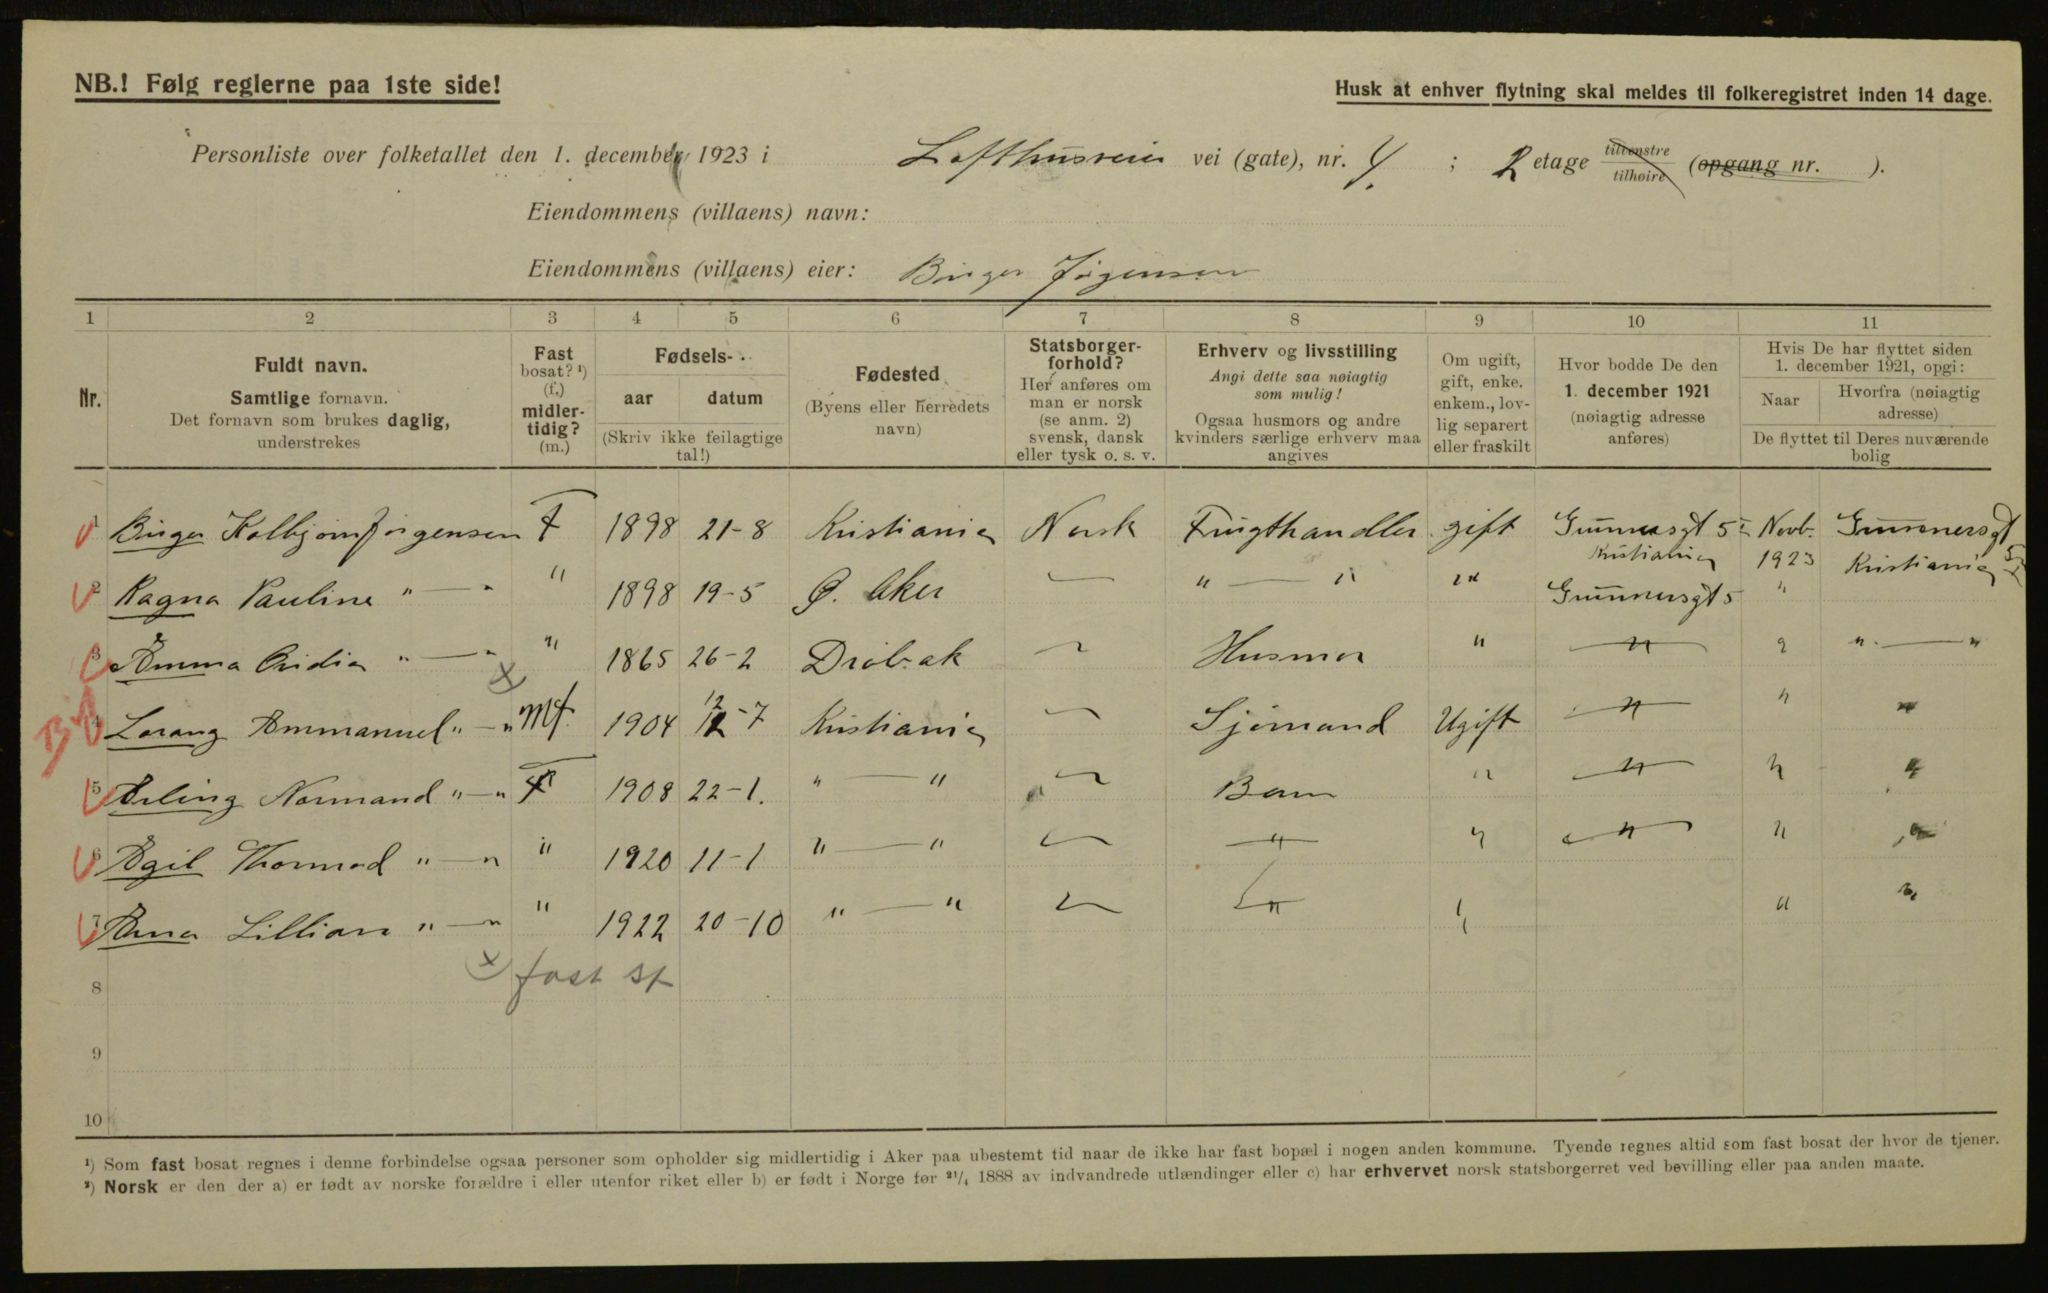 NB.! Følg reglerne paa 1ste side!
Husk at enhver flytning skal meldes til folkeregistret inden 14 dage.
Personliste over folketallet den 1. december 1923 i Lofthusveien vei (gate), nr. 4 ; 2 etage tilvenstre tilhøire (opgang nr. ).
Eiendommens (villaens) navn:
Eiendommens (villaens) eier: Birger Jørgensen
1 2 3 4 5 6 7 8 9 10 11
Nr.
Fuldt navn.
Samtlige fornavn.
Det fornavn som brukes daglig,
understrekes
Fast
bosat? ¹)
(f.)
midler-
tidig?
(m.)
Fødsels-
aar datum
(Skriv ikke feilagtige
tal!)
Fødested
(Byens eller herredets
navn)
Statsborger-
forhold?
Her anføres om
man er norsk
(se anm. 2)
svensk, dansk
eller tysk o. s. v.
Erhverv og livsstilling
Angi dette saa nøiagtig
som mulig!
Ogsaa husmors og andre
kvinders særlige erhverv maa
angives
Om ugift,
gift, enke.
enkem., lov-
lig separert
eller fraskilt
Hvor bodde De den
1. december 1921
(nøiagtig adresse
anføres)
Hvis De har flyttet siden
1. december 1921, opgi:
Naar
Hvorfra (nøiagtig
adresse)
De flyttet til Deres nuværende
bolig
1 Birger Kolbjørn Jørgensen F 1898 21-8 Kristiania Norsk Frugthandler gift Gunnersgt 5 Novb. Gunnersgt 5
Kristiania 1923 Kristiania
2 Ragna Pauline " — " " 1898 19-5 Ø. Aker — " — " " Gunnersgt 5 "
3 Emma Ovidia " — " " 1865 26-2 Drøbak — Husmor " — " — " " — "
By
4 Lorang Emmanuel " — " x mf. 1904 12-7 Kristiania — Sjømand Ugift — " — " "
5 Erling Normand " — " F 1908 22-1. " — " — Barn " — " — " "
6 Egil Thormod " — " " 1920 11-1 " — " — — " — " — " — " "
7 Erna Lillian " — " " 1922 20-10 " — " — — " — " " "
x fast sf
8
9
10
¹) Som fast bosat regnes i denne forbindelse ogsaa personer som opholder sig midlertidig i Aker paa ubestemt tid naar de ikke har fast bopæl i nogen anden kommune. Tyende regnes altid som fast bosat der hvor de tjener.
²) Norsk er den der a) er født av norske forældre i eller utenfor riket eller b) er født i Norge før ²¹/₄ 1888 av indvandrede utlændinger eller c) har erhvervet norsk statsborgerret ved bevilling eller paa anden maate.